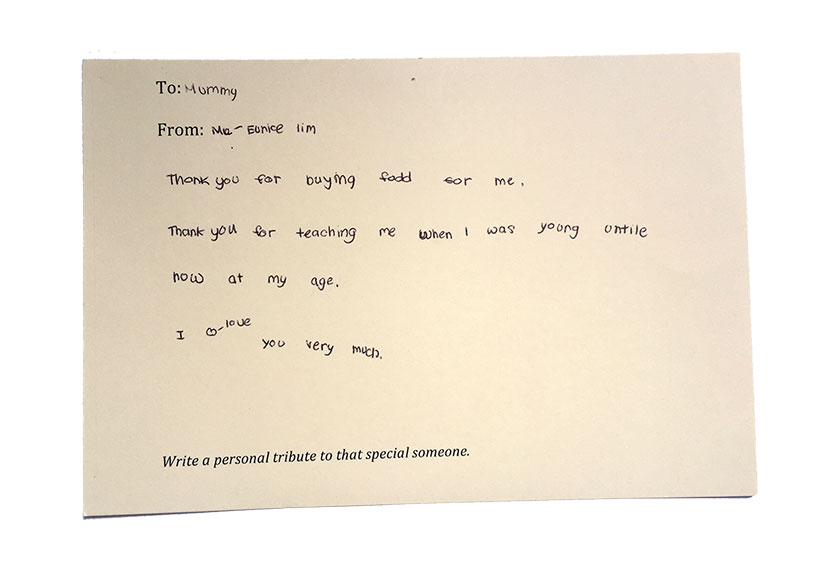 To: Mummy
From: Me - Eunice lim
Thank you for buying fodd for me.
Thank you for teaching me when I was young untile
now at my age.
I love
you very much.
Write a personal tribute to that special someone.